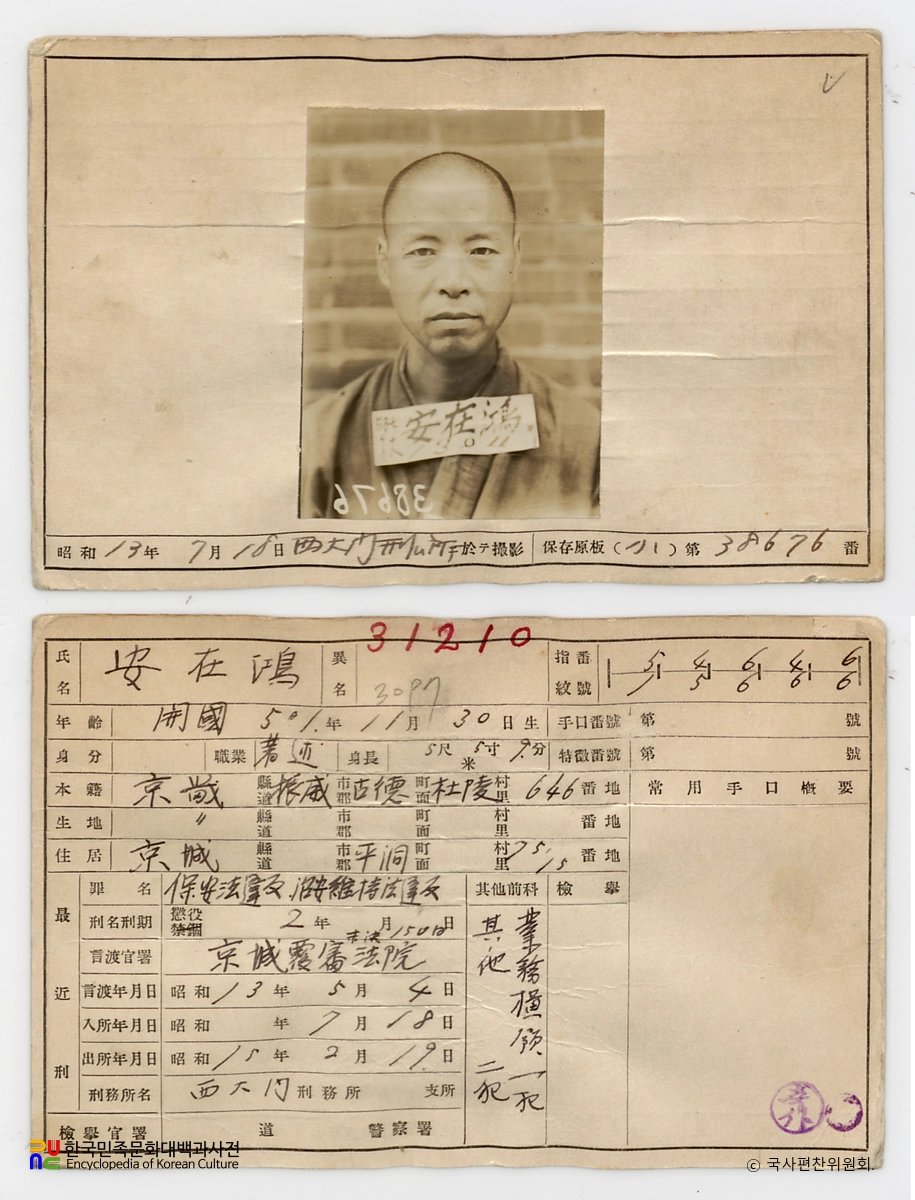 安在鴻
38676
昭和13年7月18日西大門刑務所ニ於テ撮影 保存原板(小)第38676番
31210
氏名 安在鴻 異名 3097 指紋番號 5 4 6 4 6
1 5 6 6 6
年齡 開國 501年11月30日生 手口番號 第 號
身分 職業 著述 身長 5尺5寸9分 米 特徵番號 第 號
本籍 京畿 縣道 振威 市郡 古德 町面 杜陵 村里 646番地 常用手口槪要
生地 〃 縣道 市郡 町面 村里 番地
住居 京城 縣道 市郡 平洞 町面 村里 75,15番地
最近刑 罪名 保安法違反 治安維持法違反 其他前科 檢擧
刑名刑期 懲役 禁錮 2年 月 日
未決150日
言渡官署 京城覆審法院
言渡年月日 昭和13年5月4日
入所年月日 昭和 年7月18日
出所年月日 昭和15年2月19日
刑務所名 西大門刑務所 支所
檢擧官署 道 警察署
業務橫領一犯
其他 二犯
한국민족문화대백과사전
Encyclopedia of Korean Culture
© 국사편찬위원회